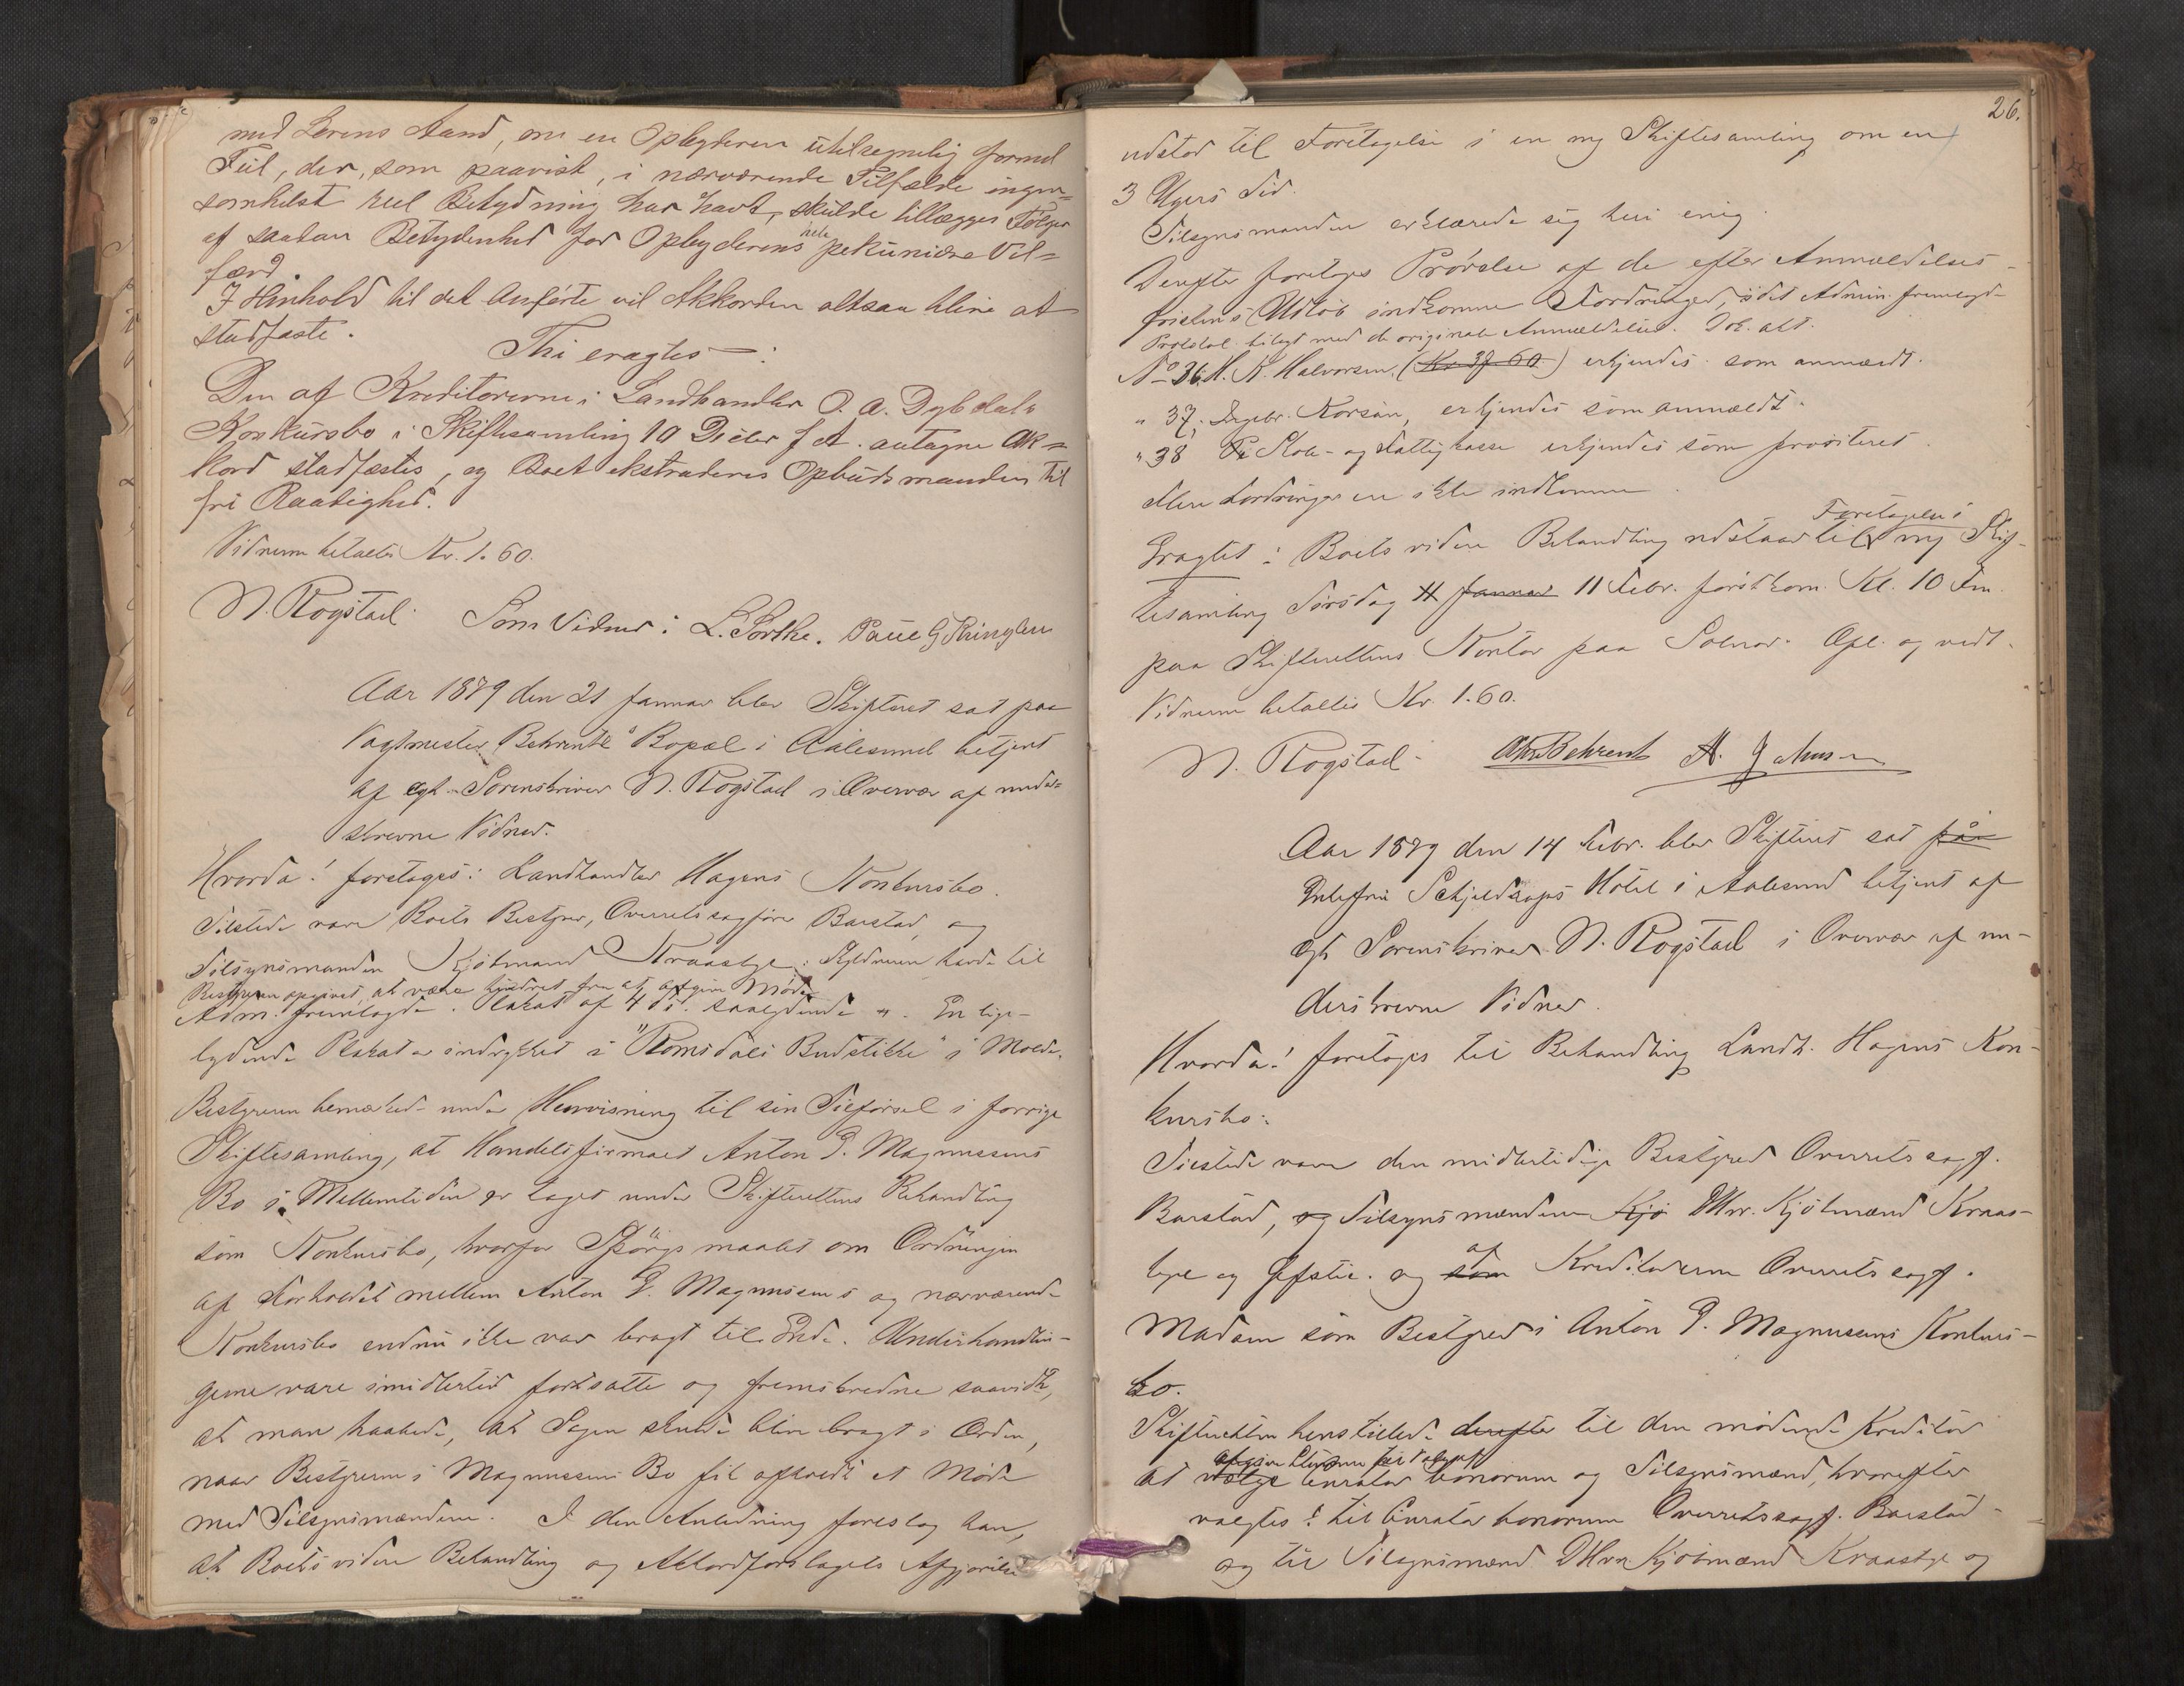 med Lovens Aand, om en Opbyderen utilregnelig formel
Feil, der, som paavist, i nærværende Tilfælde ingen-
somhelst reel Betydning har havt, skulde tillægges Følger
af saadan Betydenhed for Opbyderens hele pekuniære Vel-
færd.
I Henhold til det Anførte vil Akkorden altsaa blive at
stadfæste.
Thi eragtes:
Den af Kreditorerne i Landhandler O. A. Dybdals
Konkursbo i Skiftesamling 19 Decbr f A. antagne Ak-
kord stadfæstes, og Boet ekstraderes Opbudsmanden til
fri Raadighed.
Vidnerne betaltes Kr. 1.60.
N. Rogstad. Som Vidner: L. Sørlke. Paul G Ringlen
Aar 1879 den 21 Januar blev Skifteret sat paa
Vagtmester Behrentz' Bopæl i Aalesund betjent
af cst. Sorenskriver N. Rogstad i Overvær af under-
skrevne Vidner.
Hvorda! foretoges: Landhandler Hagens Konkursbo.
Tilstede vare Boets Bestyrer, Overretssagfører Barstad, og
Tilsynsmanden Kjøbmand Kraabye. Skyldneren havde til
Bestyreren opgivet, at være hindret fra at afgive Møde
Adm. fremlagde Plakat af 4 ds. saalydende ". En lige-
lydende Plakat er indrykket i "Romsdals Budstikke" i Molde.
Bestyreren bemærkede under Henvisning til sin Tilførsel i forrige
Skiftesamling, at Handelsfirmaet Anton P. Magnussens
Bo i Mellemtiden er taget under Skifterettens Behandling
som Konkursbo, hvorfor Spørgsmaalet om Ordningen
af Forholdet mellem Anton P. Magnussens og nærværende
Konkursbo endnu ikke var bragt til Ende. Underhandlin-
gerne vare imidlertid fortsatte og fremskredne saavidt,
at man haabede, at Sagen skulde blive bragt i Orden,
naar Bestyreren i Magnussens Bo fik afholdt et Møde
med Tilsynsmændene. I den Anledning foreslog han,
at Boets videre Behandling og Akkordforslagets Afgjørelse
26.
udstod til Foretagelse i en ny Skiftesamling om en
3 Ugers Tid.
Tilsynsmanden erklærede sig heri enig.
Derefter foretoges Prøvelse af de efter Anmældelses-
fristens Udløb indkomne Fordringer, idet Admin. fremlagde
Protokol tilligt med de originale Anmældelser. Dok. alt.
No 36. H. K. Halvorsen. (Kr 37 60.) erkjendes som anmældt.
" 37. Ingebr. Korsøn, erkjendes som anmældt.
" 38 Skole- og Fattigkasse erkjendes som prioriteret.
Flere Fordringer ere ikke indkomne.
Eragtet: Boets videre Behandling udstaar til Foretagelse i ny Skif-
tesamling Torsdag 11 Januar 11 Febr. førstkom. Kl. 10 Fm.
paa Skifterettens Kontor paa Solnør. Opl. og vedt.
Vidnerne betaltes Kr. 1.60.
N. Rogstad. Behrentz A. Johnsen
Aar 1879 den 14 Febr. blev Skifteret sat paa
Enkefru Schjeldrops Hotel i Aalesund betjent af
cst Sorenskriver N. Rogstad i Overvær af un-
derskrevne Vidner.
Hvorda! foretoges til Behandling Landh. Hagens Kon-
kursbo.
Tilstede vare den midlertidige Bestyrer Overretssagf.
Barstad, og Tilsynsmændene Kjø DHrr. Kjøbmænd Kraa-
bye og og som af Kreditorerne Overretssagf.
Madsen som Bestyrer i Anton P. Magnussens Konkurs-
bo.
Skifteretten henstillede derefter til den mødende Kreditor
at vælge afgive Stemme for Valget af Curator bonorum og Tilsynsmænd, hvorefter
valgtes: til Curator bonorum Overretssagf. Barstad
og til Tilsynsmænd DHrr Kjøbmænd Kraabye og